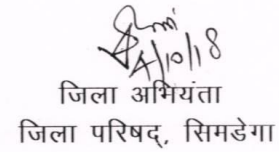 4/10/18
जिला अभियंता
जिला परिषद्, सिमडेगा